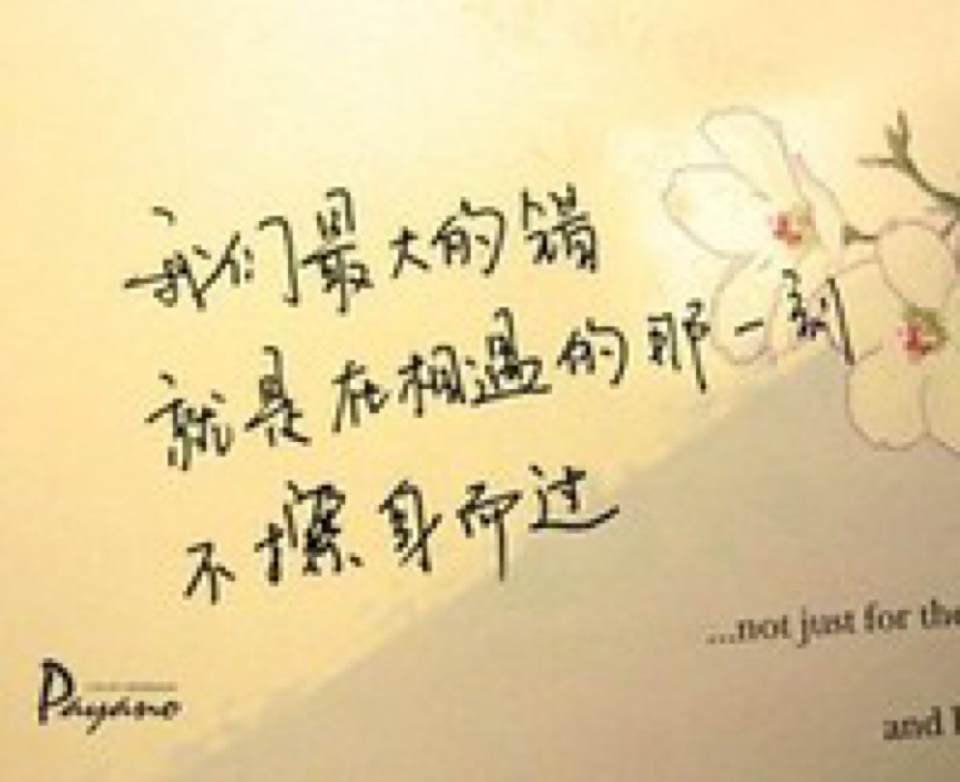 我们最大的错
就是在相遇的那一刻
不擦身而过
...not just for the
and
Payano